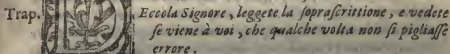 Trap. Eccola Signore, leggete la soprascrittione, e vedete
se viene à voi, che qualche volta non si pigliasse
errore.